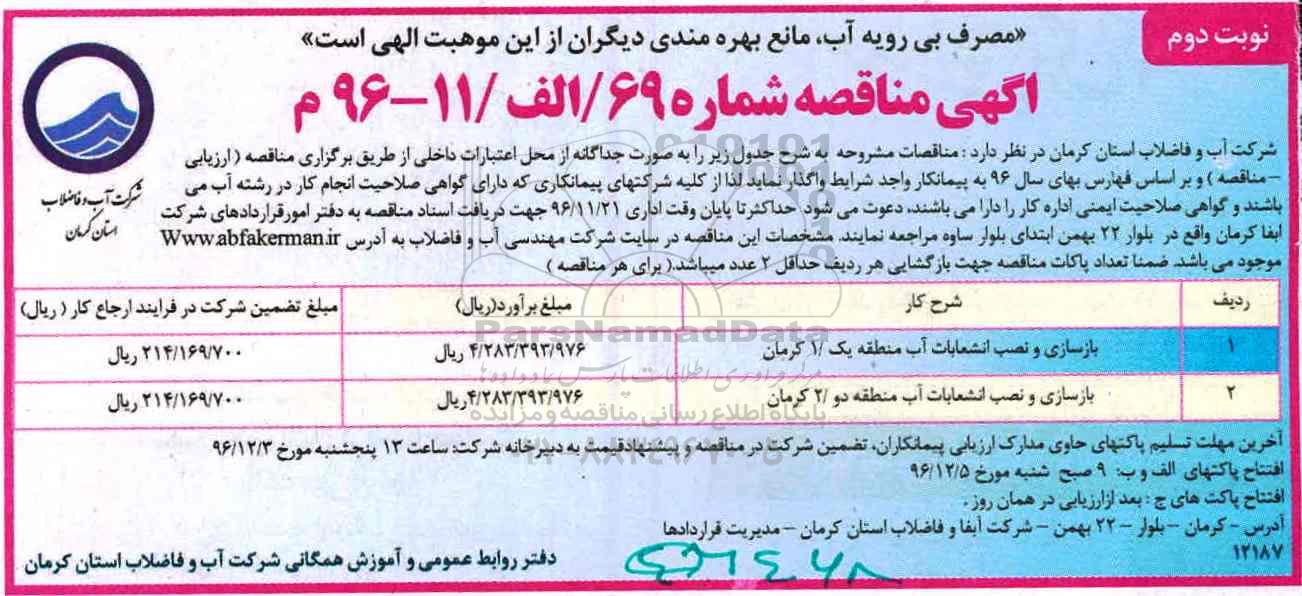 نوبت دوم
«مصرف بی رویه آب، مانع بهره مندی دیگران از این موهبت الهی است»
آگهی مناقصه شماره ۶۹/الف /۱۱-۹۶ م
شرکت آب و فاضلاب استان کرمان
شرکت آب و فاضلاب استان کرمان در نظر دارد : مناقصات مشروحه به شرح جدول زیر را به صورت جداگانه از محل اعتبارات داخلی از طریق برگزاری مناقصه ( ارزیابی
-مناقصه ) و بر اساس فهارس بهای سال ۹۶ به پیمانکار واجد شرایط واگذار نماید لذا از کلیه شرکتهای پیمانکاری که دارای گواهی صلاحیت انجام کار در رشته آب می
باشند و گواهی صلاحیت ایمنی اداره کار را دارا می باشند، دعوت می شود حداکثر تا پایان وقت اداری ۹۶/۱۱/۲۱ جهت دریافت اسناد مناقصه به دفتر امور قراردادهای شرکت
ابفا کرمان واقع در بلوار ۲۲ بهمن ابتدای بلوار ساوه مراجعه نمایند. مشخصات این مناقصه در سایت شرکت مهندسی آب و فاضلاب به آدرس Www.abfakerman.ir
موجود می باشد. ضمنا تعداد پاکات مناقصه جهت بازگشایی هر ردیف حداقل ۲ عدد میباشد.( برای هر مناقصه )
ردیف شرح کار مبلغ برآورد(ریال) مبلغ تضمین شرکت در فرایند ارجاع کار ( ریال)
۱ بازسازی و نصب انشعابات آب منطقه یک /۱ کرمان ۴/۲۸۳/۳۹۳/۹۷۶ ریال ۲۱۴/۱۶۹/۷۰۰ ریال
۲ بازسازی و نصب انشعابات آب منطقه دو /۲ کرمان ۴/۲۸۳/۳۹۳/۹۷۶ریال ۲۱۴/۱۶۹/۷۰۰ ریال
ParsNamadData
پایگاه اطلاع رسانی مناقصه و مزایده
آخرین مهلت تسلیم پاکتهای حاوی مدارک ارزیابی پیمانکاران، تضمین شرکت در مناقصه و پیشنهادقیمت به دبیرخانه شرکت: ساعت ۱۳ پنجشنبه مورخ ۹۶/۱۲/۳
افتتاح پاکتهای الف و ب: ۹ صبح شنبه مورخ ۹۶/۱۲/۵
افتتاح پاکت های ج : بعد ازارزیابی در همان روز .
آدرس - کرمان - بلوار - ۲۲ بهمن - شرکت آبفا و فاضلاب استان کرمان - مدیریت قراردادها
۱۲۱۸۷
دفتر روابط عمومی و آموزش همگانی شرکت آب و فاضلاب استان کرمان